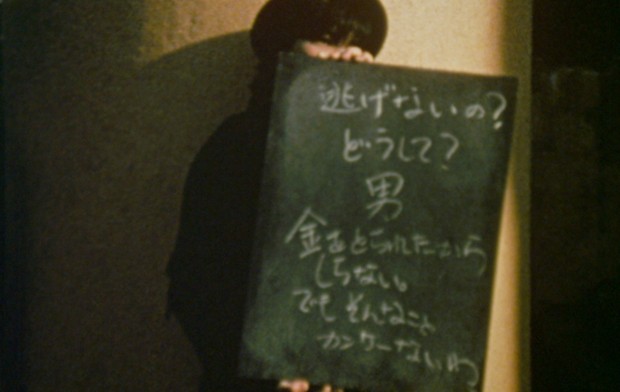 逃げないの?
どうして?
男
金をとられたから
しらない。
でも そんなこと
カンケーないわ